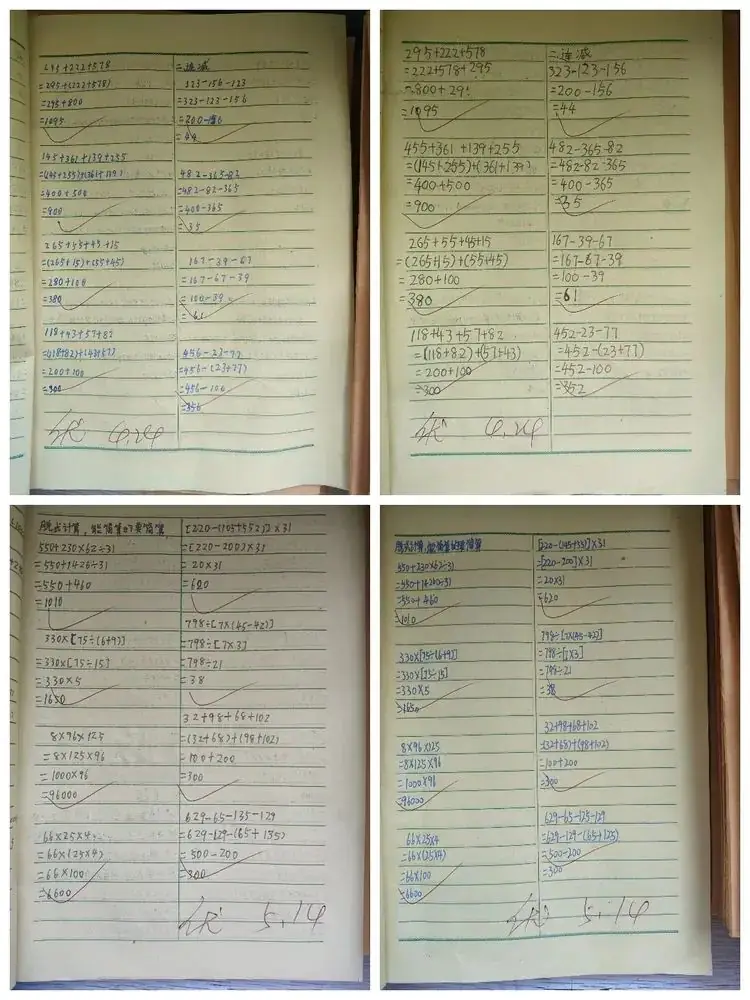 295+222+578
=295+(222+578)
=295+800
=1095
145+361+139+255
=(145+255)+(361+139)
=400+500
=900
265+55+45+15
=(265+15)+(55+45)
=280+100
=380
118+43+57+82
=(118+82)+(43+57)
=200+100
=300
二连减
323-156-123
=323-123-156
=200-156
=44
482-365-82
=482-82-365
=400-365
=35
167-39-67
=167-67-39
=100-39
=61
456-23-77
=456-(23+77)
=456-100
=356
4.24
295+222+578
=222+578+295
=800+295
=1095
455+361+139+255
=(145+255)+(361+139)
=400+500
=900
265+55+45+15
=(265+15)+(55+45)
=280+100
=380
118+43+57+82
=(118+82)+(57+43)
=200+100
=300
二连减
323-123-156
=200-156
=44
482-365-82
=482-82-365
=400-365
=35
167-39-67
=167-67-39
=100-39
=61
452-23-77
=452-(23+77)
=452-100
=352
4.24
脱式计算,能简算的要简算
550+230×62÷31
=550+1426÷31
=550+460
=1010
330×[75÷(6+9)]
=330×[75÷15]
=330×5
=1650
8×96×125
=8×125×96
=1000×96
=96000
66×25×4
=66×(25×4)
=66×100
=6600
=[220-200)×31
=20×31
=620
798÷[7×(45-42)]
=798÷[7×3]
=798÷21
=38
32+98+68+102
=(32+68)+(98+102)
=100+200
=300
629-65-135-129
=629-129-(65+135)
=500-200
=300
5.14
脱式计算,能简算的要简算
=550+14260÷31
=550+460
=1010
330×[75÷(6+9)]
=330×[75÷15]
=330×5
=1650
8×96×125
=8×125×96
=1000×96
=96000
66×25×4
=66×(25×4)
=66×100
=6600
=[220-200]×31
=20×31
=620
798÷[7×(45-42)]
=798÷[7×3]
=798÷21
=38
32+98+68+102
=(32+68)+(98+102)
=100+200
=300
629-65-125-129
=629-129-(65+125)
=500-200
=300
5.14